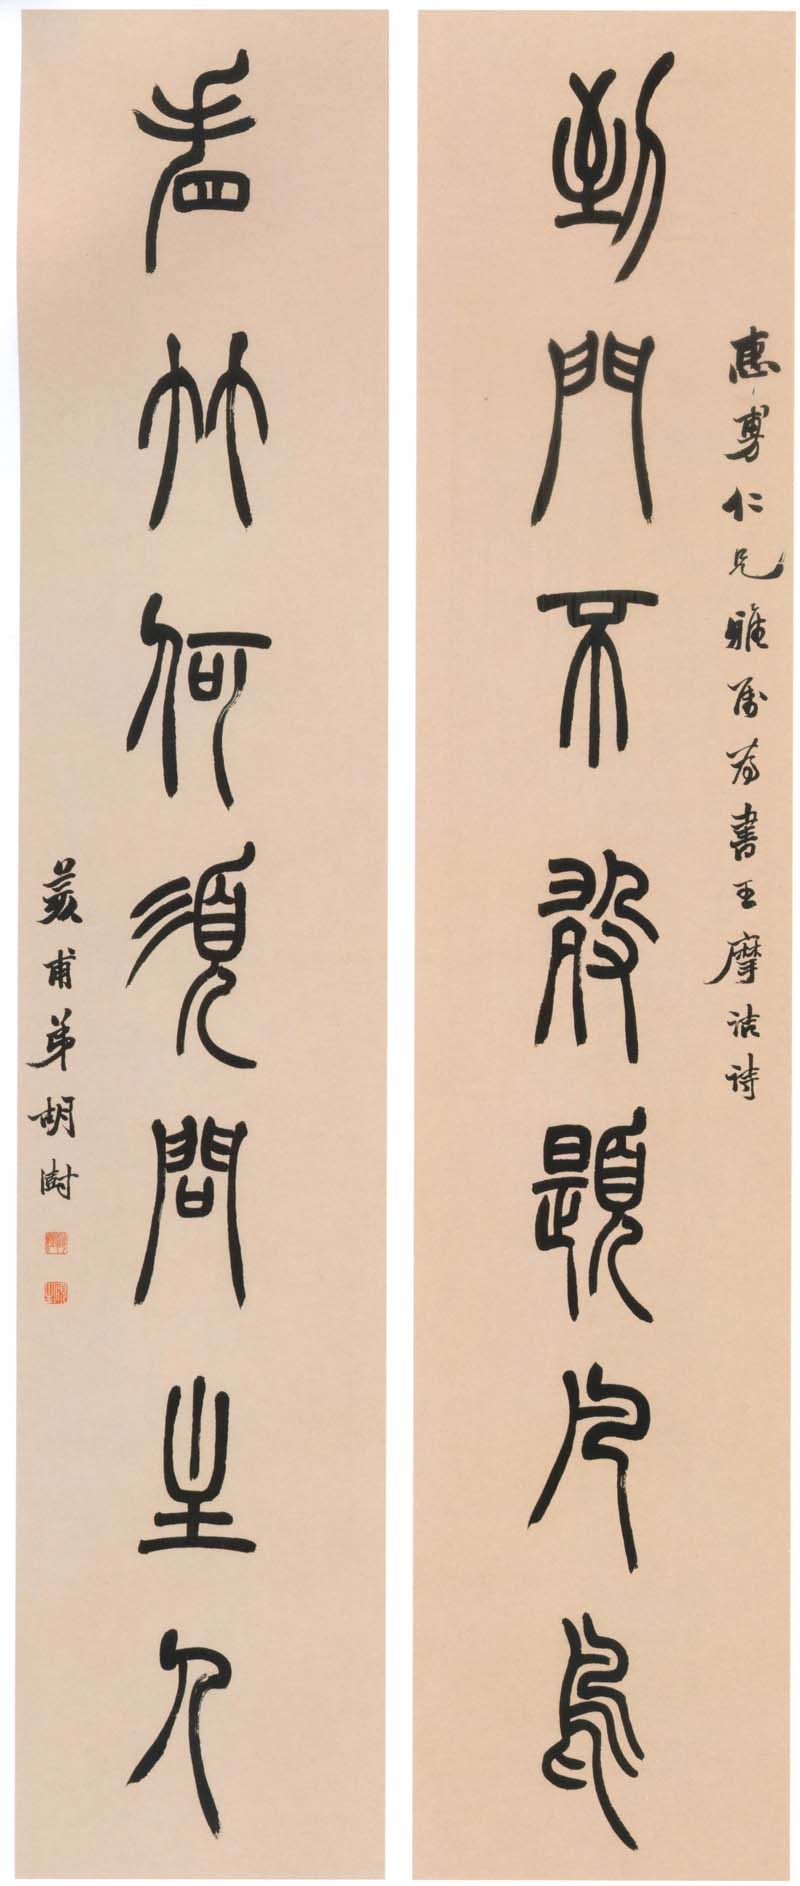 仁兄雅屬為書王摩詰詩
到門不敢題凡鳥
看竹何須問主人
荄甫弟胡澍